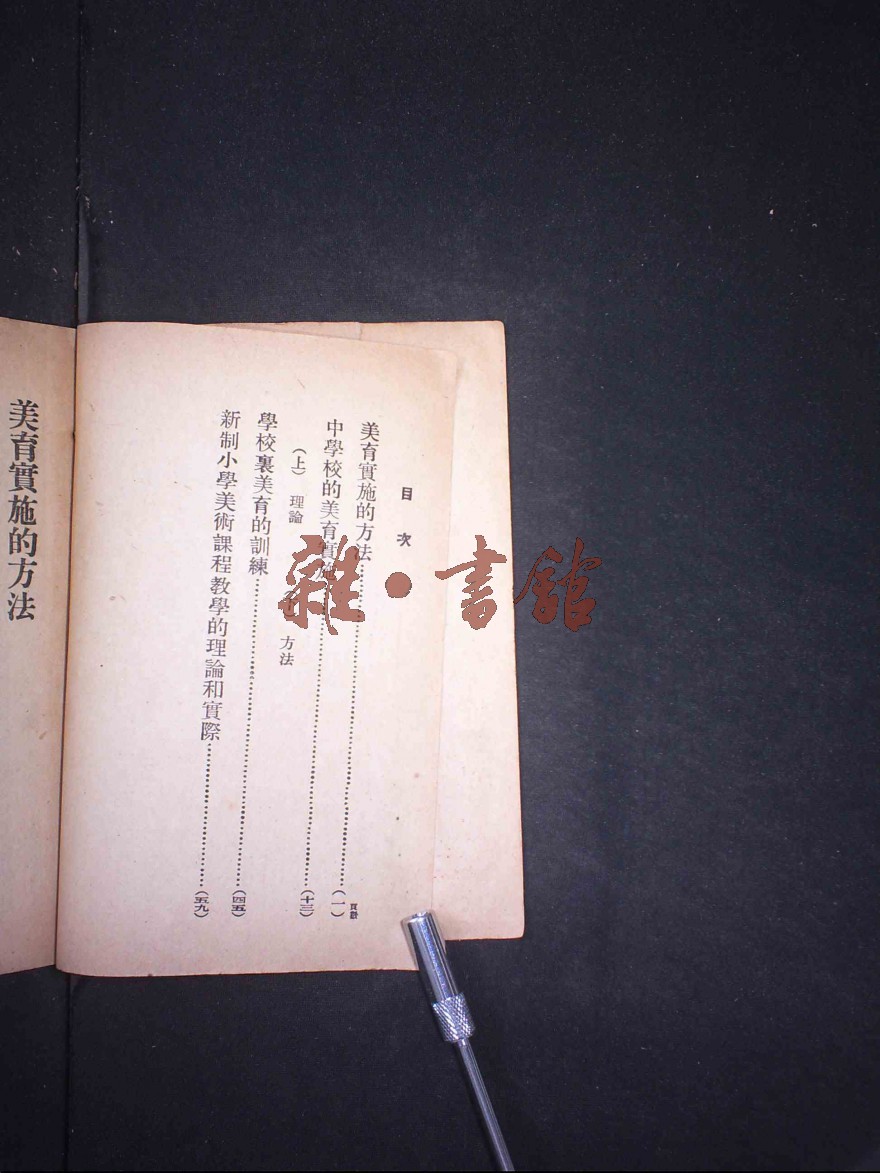 目次
頁數
美育實施的方法……(一)
中學校的美育實施……(十三)
(上) 理論 方法
學校裏美育的訓練……(四五)
新制小學美術課程教學的理論和實際……(五九)
美育實施的方法
雜·書館